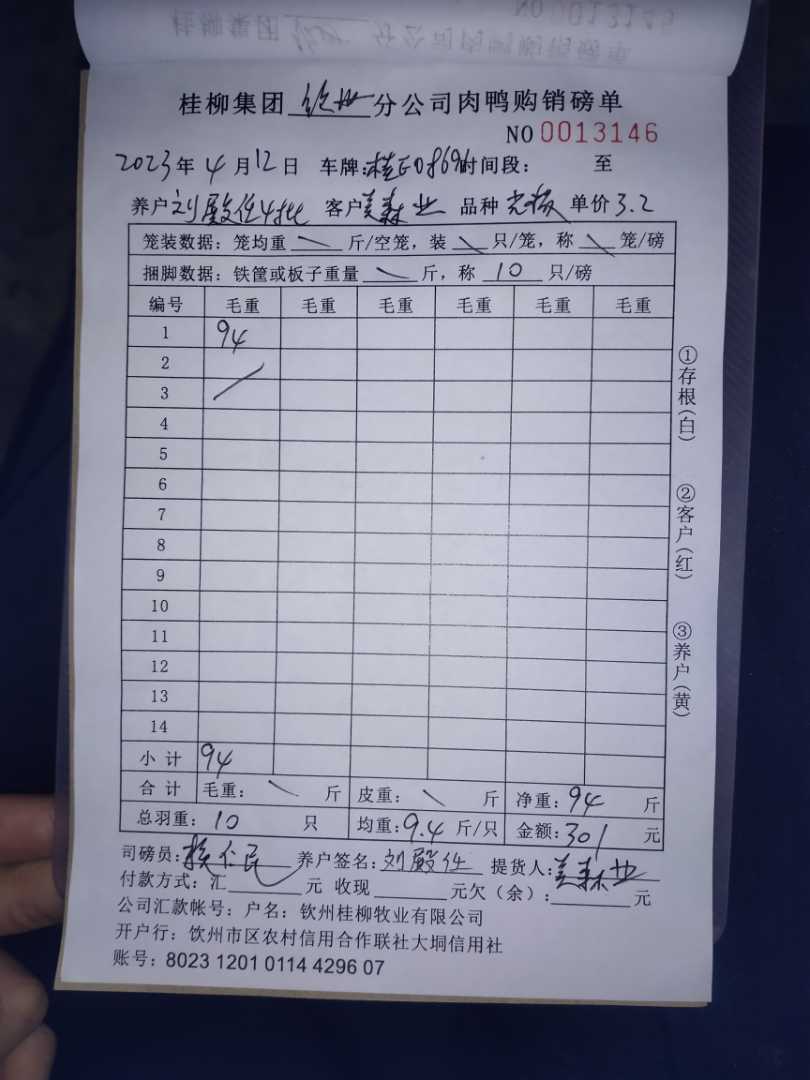 桂柳集团 钦州 分公司肉鸭购销磅单
NO 0013146
2023年4月12日 车牌: 时间段: 至
养户 刘殿任4批 客户 美森业 品种 单价 3.2
笼装数据：笼均重 \ 斤/空笼，装 \ 只/笼，称 \ 笼/磅
捆脚数据：铁筐或板子重量 \ 斤，称 10 只/磅
编号 毛重 毛重 毛重 毛重 毛重 毛重
1 94
2
3
4
5
6
7
8
9
10
11
12
13
14
小计 94
合计 毛重： \ 斤 皮重： \ 斤 净重：94 斤
总羽重：10 只 均重:9.4 斤/只 金额:301 元
司磅员: 养户签名:刘殿任 提货人:美森业
付款方式：汇 元 收现 元欠（余）: 元
公司汇款帐号：户名：钦州桂柳牧业有限公司
开户行：饮州市区农村信用合作联社大垌信用社
账号：8023 1201 0114 4296 07
①存根(白)
②客户(红)
③养户(黄)